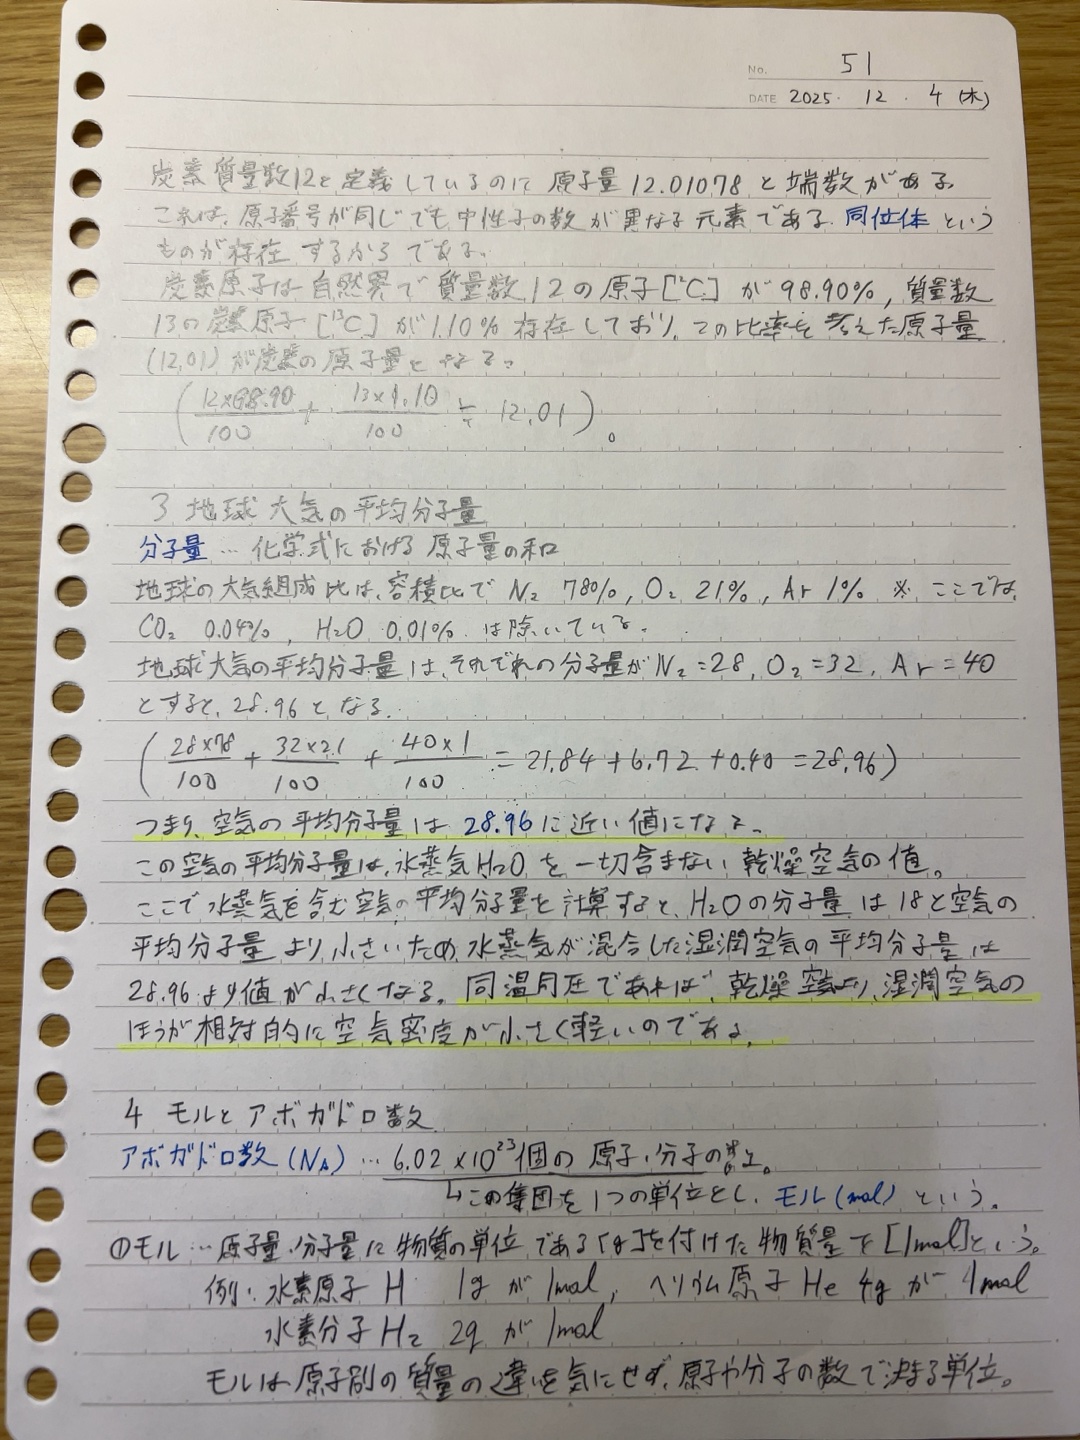 No. 51
DATE 2025. 12. 4 (木)
炭素質量数12と定義しているのに原子量12.01078と端数がある。
これは、原子番号が同じでも中性子の数が異なる元素である同位体という
ものが存在するからである。
炭素原子は自然界で質量数12の原子[¹²C]が98.90%,質量数
13の炭素原子[¹³C]が1.10%存在しており、この比率を考えた原子量
(12.01)が炭素の原子量となる。
(12×98.90/100 + 13×1.10/100 ≒ 12.01)。
3 地球大気の平均分子量
分子量…化学式における原子量の和
地球の大気組成比は、容積比でN₂ 78%, O₂ 21%, Ar 1% ※ここでは、
CO₂ 0.04%, H₂O 0.01%は除いている。
地球大気の平均分子量は、それぞれの分子量がN₂=28, O₂=32, Ar=40
とすると、28.96となる。
(28×78/100 + 32×21/100 + 40×1/100 = 21.84+6.72+0.40=28.96)
つまり、空気の平均分子量は28.96に近い値になる。
この空気の平均分子量は、水蒸気H₂Oを一切含まない乾燥空気の値。
ここで水蒸気を含む空気の平均分子量を計算すると、H₂Oの分子量は18と空気の
平均分子量より小さいため、水蒸気が混合した湿潤空気の平均分子量は
28.96より値が小さくなる。同温同圧であれば、乾燥空気より、湿潤空気の
ほうが相対的に空気密度が小さく軽いのである。
4 モルとアボガドロ数
アボガドロ数(NA)…6.02×10²³個の原子・分子の数。
↳この集団を1つの単位とし、モル(mol)という。
①モル…原子量・分子量に物質の単位である「g」を付けた物質量を[1mol]という。
例:水素原子H 1gが1mol, ヘリウム原子He 4gが1mol
水素分子H₂ 2gが1mol
モルは原子別の質量の違いを気にせず、原子や分子の数で決まる単位。